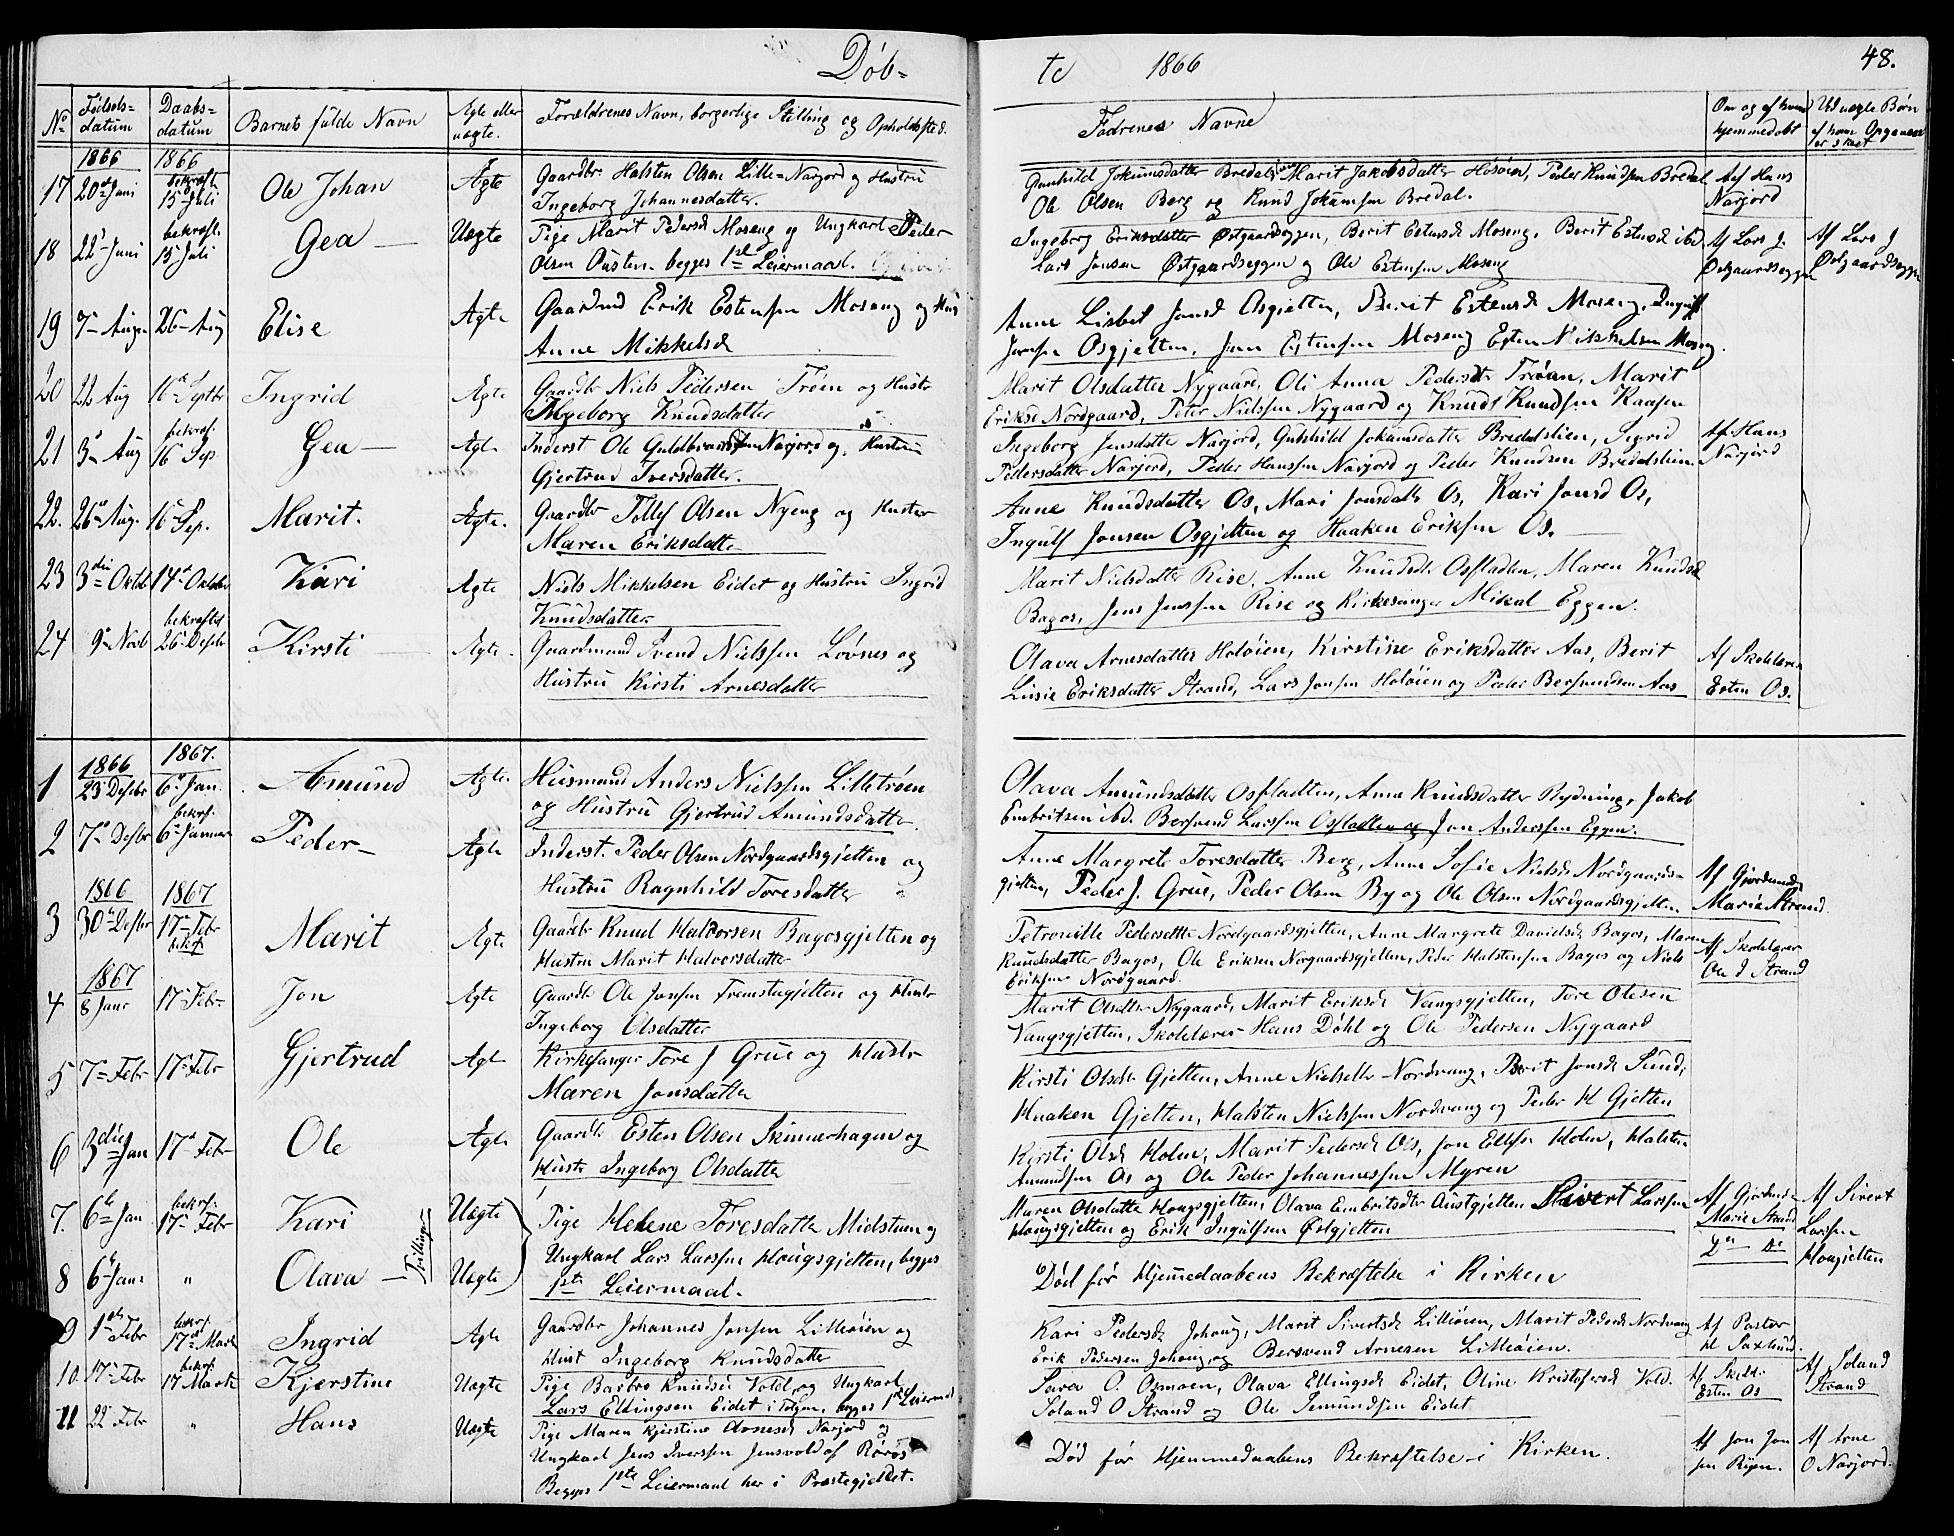 Døb-
te 1866
48.
No
Fødsels-
datum
Daabs-
datum
Barnets fulde Navn
Ægte eller
uægte.
Forældrenes Navn, borgerlige Stilling og Opholdssted.
Fadrenes Navne
Om og af hvem
hjemmedøbt
Ved uægte Børn
af hvem Opgaven
er skeet
1866 1866
17 20de Juni bekræft. 15 Juli Ole Johan Ægte Gaardbr Halsten Olsen Lille-Narjord og Hustru
Ingeborg Johannesdatter.
Gunhild Jokumsdatter Bredal, Marit Jakobsdatter Hosøien, Peder Knudsen Bredal
Ole Olsen Berg og Knud Jokumsen Bredal.
Af Hans
Narjord
18 22 Juni bekræft. 15 Juli Gea Uægte Pige Marit Pedersd Moseng og Ungkarl Peder
Olsen Ousten. begges 1ste Leiermaal.
Ingeborg Eriksdatter Østgaardseggen, Berit Estensd Moseng, Berit Estensd ibd
Lars Jonsen Østgaardseggen og Ole Estensen Moseng
Af Lars J.
Østgaardseggen
Af Lars J
Østgaardseggen
19 7 Aug 26 Aug Elise Ægte Gaardmd Erik Estensen Moseng og Hus
Anne Mikkelsd
Anne Lisbet Jonsd Osgjelten, Berit Estensd Moseng, Ingulf
Jonsen Osgjelten, Jon Estensen Moseng Esten Mikkelsen Moseng.
20 22 Aug 16 Septbr Ingrid Ægte Gaardbr Niels Pedersen Trøen og Hustr
Ingeborg Knudsdatter
Marit Olsdatter Nygaard, Oli Anna Pedersdtr Trøan, Marit
Eriksd Nordgaard, Peter Nielssen Nygaard og Knud Knudsen Kaasen
21 3 Aug bekræf. 16 Sep Gea Ægte Inderst Ole Guldbrandsen Narjord og Hustru
Gjertrud Iversdatter.
Ingeborg Jensdatter Narjord, Gunhild Jokumsdatter Bredalslien, Sigrid
Pedersdatter Narjord, Peder Hanssen Narjord og Peder Knudsen Bredalslien
Af Hans
Narjord
22. 26 Aug. 16 Sep. Marit. Ægte. Gaardbr Tollef Olsen Nyeng og Hustr
Maren Eriksdatter
Anne Knudsdatter Os, Mari Jonsdatter Os, Kari Jonsd Os,
Ingulf Jonsen Osgjelten og Haaken Eriksen Os.
23 3die Oktbr 14 Oktober Kari Ægte Niels Mikkelsen Eidet og Hustru Ingrid
Knudsdatter
Marit Nielsdatter Rise, Anne Knudsdtr. Osfladten, Maren Knudsd
Bagos, Jens Jenssen Rise og Kirkesanger Mikal Eggen.
24 9 Novb bekræftet 26 Desbr Kirsti Ægte. Gaardmand Svend Nielssen Løvnes og
Hustru Kirsti Arnesdatter
Olava Arnesdatter Holøien, Kirstine Eriksdatter Aas, Berit
Lusie Eriksdatter Strand, Lars Jonsen Holøien og Peder Bersvendsen Aas
Af Skolelærer
Esten Os.
1866 1867.
1 23 Desbr 6 Jan. Amund Ægte. Huusmand Anders Nielssen Lilletrøen
og Hustru Gjertrud Amundsdatter.
Olava Amundsdatter Osfladten, Anne Knudsdatter Rydning, Jakob
Embritsen ibd. Bersvend Larssen Osfladten og Jon Anderssen Eggen.
2 7 Desbr bekræf. 6 Januar Peder Ægte Inderst. Peder Olsen Nordgaardsgjelten og
Hustru Ragnhild Toresdatter
Anne Margrete Toresdatter Berg, Anne Sofie Nielsd Nordgaards-
gjelten, Peder J. Grue, Peder Olsen By og Ole Olsen Nordgaardsgjelten
Af Gjordmd.
Marie Strand.
1866 1867
3 30 Desbr 17 Febr bekræf Marit Ægte Gaardbr Knud Haldorsen Bagosgjelten og
Hustru Marit Halvorsdatter
Petronille Pedersdatter Nordgaardsgjelten, Anne Margrete Davidsd Bagos, Maren
Knudsdatter Bagos, Ole Eriksen Norgaardsgjelten, Peder Halstensen Bagos og Niels
Eriksen Nordgaard.
Af Skolelærer
Ole J Strand
1867
4 8 Janr 17 Febr Jon Ægte Gaardbr Ole Jonsen Tremstagjelten og Hustr
Ingeborg Olsdatter
Marit Olsdtr Nygaard, Marit Eriksd Vangsgjelten, Tore Olesen
Vangsgjelten, Skolelærer Hans Døhl og Ole Pedersen Nygaard
5 7 Febr 17 Febr Gjertrud Ægte Kirkesanger Tore J Grue og Hustr
Maren Jonsdatter
Kirsti Olsdtr Gjelten, Anne Nielsdtr Nordvang, Berit Jonsd Sund,
Haaken Gjelten, Halsten Nielssen Nordvang og Peder H Gjelten
6 3die Jan 17 Febr Ole Ægte Gaardbr Esten Olsen Skinnerhagen og
Hustr Ingeborg Olsdatter
Kirsti Olsd Holm, Marit Pedersd Os, Jon Ellefs Holm, Halsten
Amundsen Os og Ole Peder Johannessen Myren
7. 6te Jan bekræf. 17 Febr Kari Uægte Pige Helene Toresdatter Midstuen og
Maren Olsdatter Hougsgjelten, Olava Embritsdtr Austgjelten Sivert Larssen
Hougsgjelten og Erik Ingulfsen Østgjelten
Af Gjordmd
Marie Strand
Af Sivert
Larssen
Hougsgjelten
Tvillinger
8 6te Janr " Olava Uægte Ungkarl Lars Larssen Hougsgjelten, begges
1ste Leiermaal.
Død før Hjemmedaabens Bekræftelse i Kirken
Do Do
9 1ste Febr bekræf. 17de Marts Ingrid Ægte Gaardbr Johannes Jonsen Lilleøien og
Hust Ingeborg Knudsdatter
Kari Pedersd Johoug, Marit Sivertsd Lilleøien, Marit Pedersd Nordvang
Erik Pedersen Johoug, og Bersvend Arnesen Lilleøien.
Af Pastor
H Saxlund.
10. 17 Febr bekræf. 17 Marts Kjerstine Uægte Pige Barbro Knudsd Vold og Ungkarl
Lars Ellingsen Eidet i Tolgen, begges 1ste Leiermaal
Sara O. Osmoen, Olava Ellingsd Eidet, Oline Kristofersd Vold.
Soland O Strand og Ole Semundsen Eidet
Af Skoll.
Esten Os
Af Soland
Strand
11 22 Febr " Hans Uægte Pige Maren Kjerstine Arnesd Narjord og
Ungkarl Jens Iverssen Jensvold af Røros
Begges 1ste Leiermaal her i Præstegjeldet.
Død før Hjemmedaabens Bekræftelse i Kirken.
Af Jon Jon
sen Ryen.
Af Arne
O Narjord.